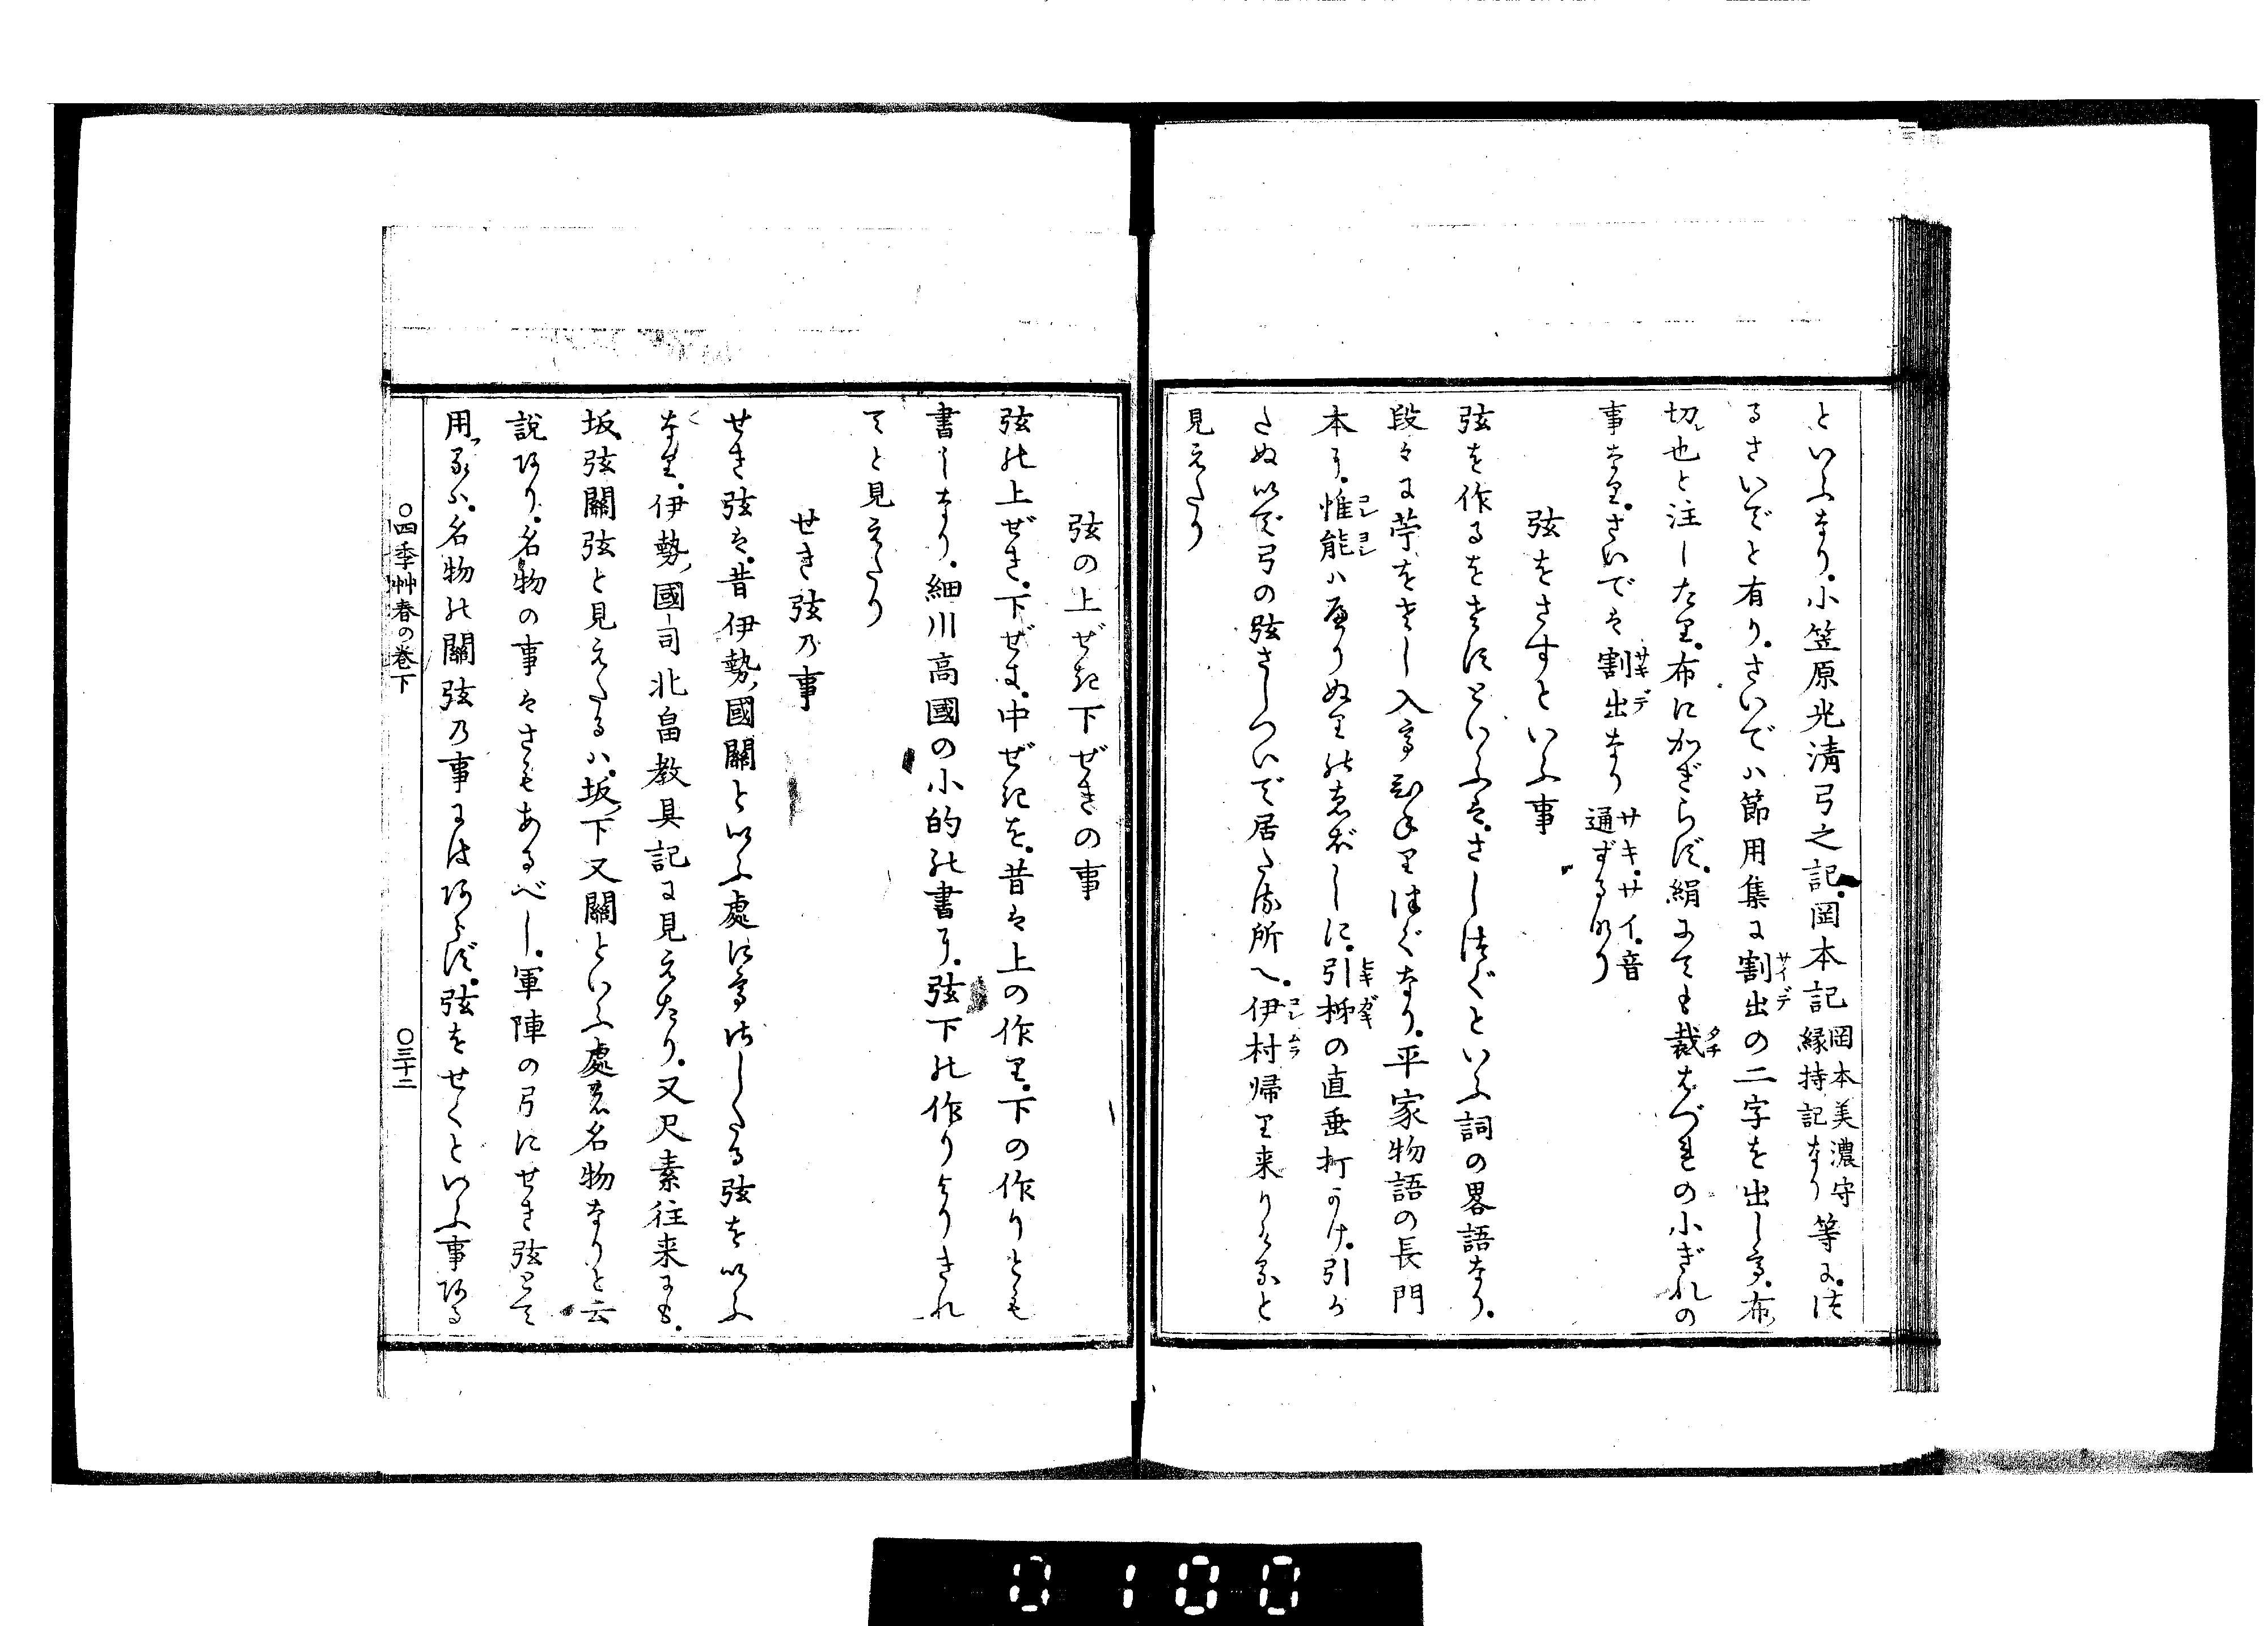 といふなり。小笠原光淸弓之記。岡本記岡本美濃守縁持記なり等に。つ
るさいでと有り。さいでハ節用集に割出の二字を出して。布
切也と注したり。布にかぎらず。絹にても裁はづれの小ぎれの
事なり。さいでは割出なりサキ。サイ。音通ずるなり
弦をさすといふ事
弦を作るをさすといふは。さしつぐといふ詞の畧語なり。
段々に苧をさし入てひねりつぐなり。平家物語の長門
本に。惟能ハ居りぬりのゑぼしに。引柿の直垂打かけ。引か
たぬいで弓の弦さしついで居たる所へ。伊村帰り来りけると
見えたり
弦の上ぜき下ぜきの事
弦の上ぜき。下ぜき。中ぜきを。昔は上の作り。下の作りとも
書しなり。細川高國の小的の書に。弦下の作りよりきれ
てと見えたり
せき弦乃事
せき弦は。昔伊勢國關といふ處にて作したる弦をいふ
なり。伊勢國司北畠教具記に見えたり。又尺素往来にも。
坂弦關弦と見えたるハ。坂下又關といふ處の名物なりと云
說あり。名物の事はさもあるべし。軍陣の弓にせき弦とて
用るハ。名物の關弦乃事にはあらず。弦をせくといふ事ある
〇四季艸春の巻下
〇三十二
0100